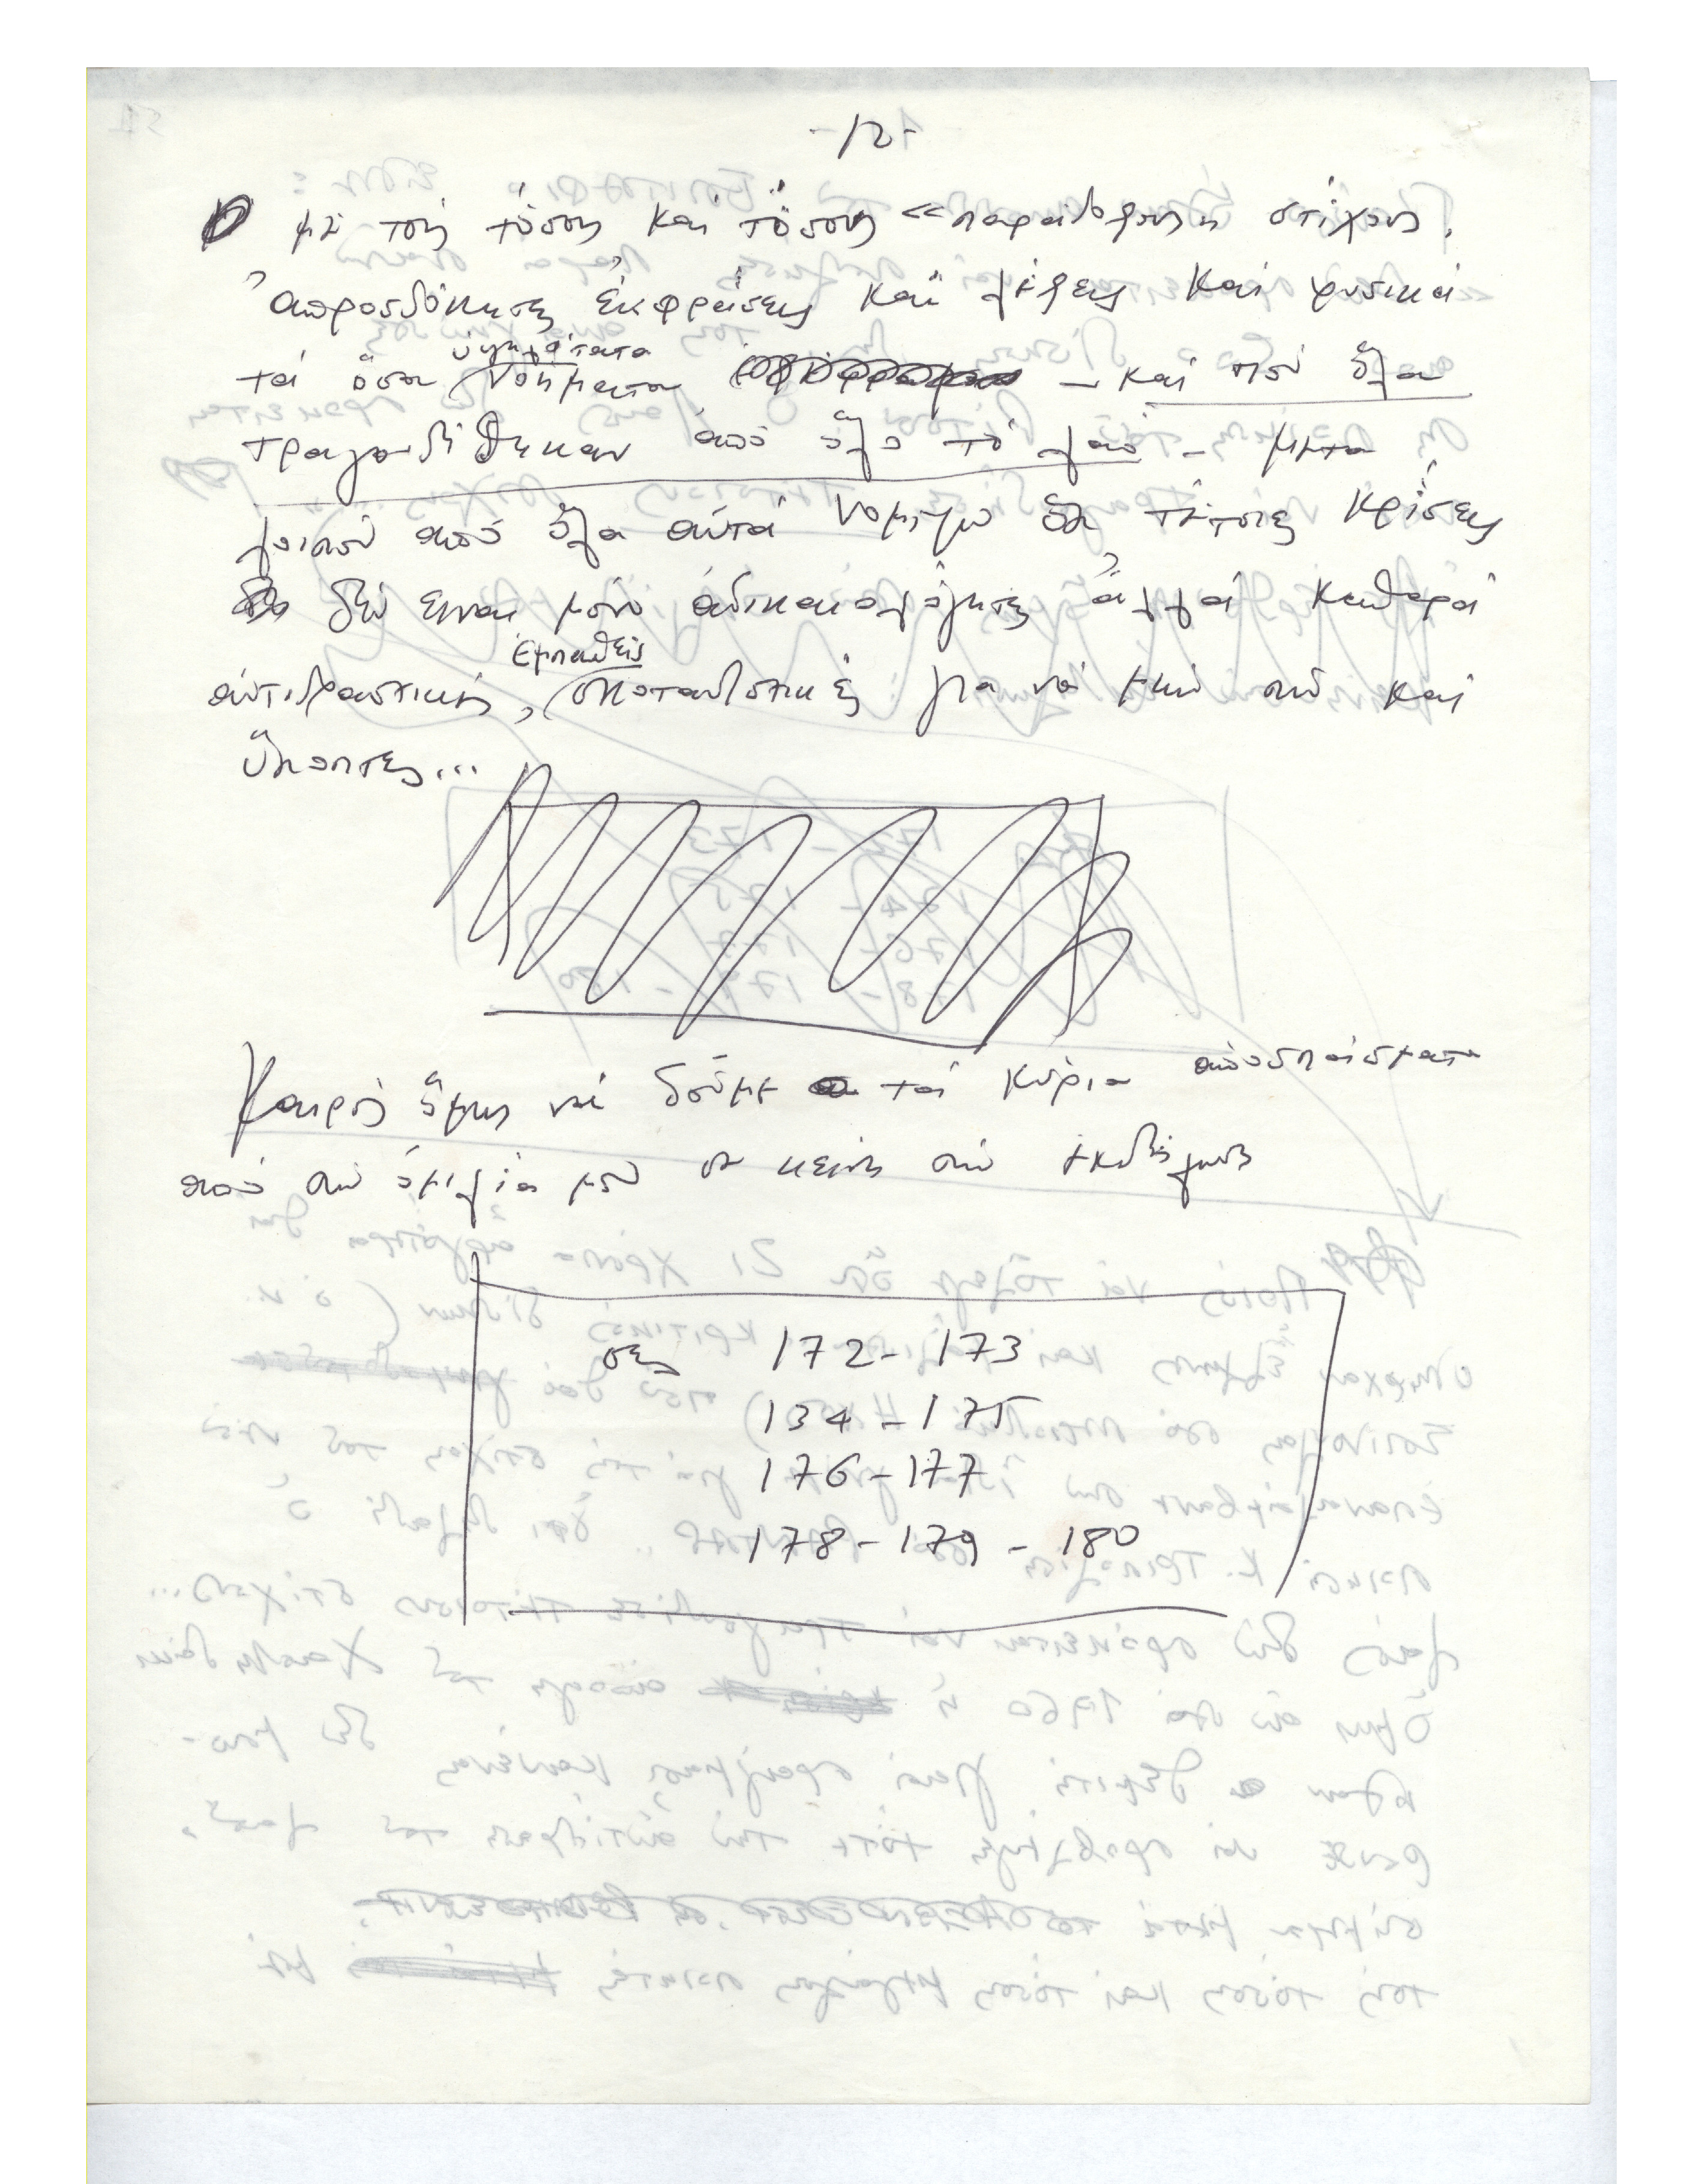 -12-
μὲ τοὺς τόσους καὶ τόσους «παράδοξους» στίχους,
ἀπροσδόκητες ἐκφράσεις καὶ λέξεις καὶ φυσικὰ
τὰ ὅσα ὑψηλότατα νοήματα – καὶ ποὺ ὅλα
τραγουδήθηκαν ἀπὸ ὅλο τὸ λαό – μετὰ
λοιπὸν ἀπὸ ὅλα αὐτὰ νομίζω ὅτι τέτοιες κρίσεις
δὲν εἶναι μόνο ἀδικαιολόγητες ἀλλὰ καθαρὰ
ἀντιδραστικές, ἐμπαθεῖς σκοταδιστικές γιὰ νὰ μὴν πῶ καὶ
ὕποπτες...
Καιρὸς ὅμως νὰ δοῦμε τὰ κύρια ἀποσπάσματα
ἀπὸ τὴν ὁμιλία μου σὲ κείνη τὴν ἐκδήλωση
σελ 172-173
134-175
176-177
178-179-180